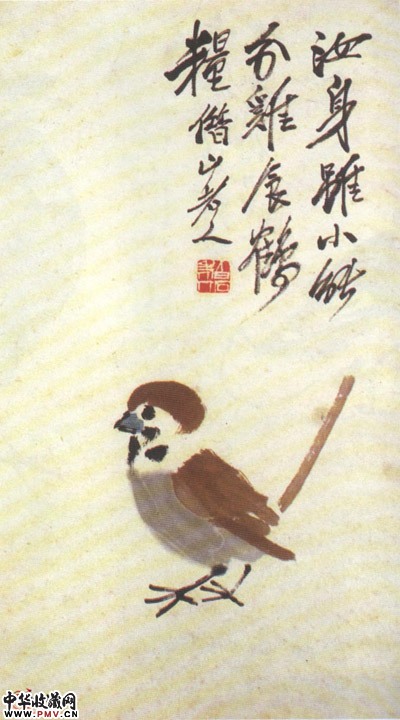 汝身雖小能
分雞食鶴
糧借山老人
中华收藏网
www.PMV.CN